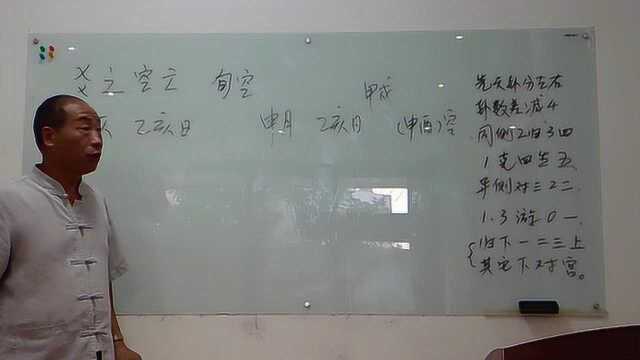 ××之空亡 旬空
甲戌
乙亥日 申月 乙亥日 (申酉)空
先天卦分左右
卦数差减4
同侧2归3四
1克四生五
异侧对三2二
1.3游0一
归下一二三上
其它下对宫。